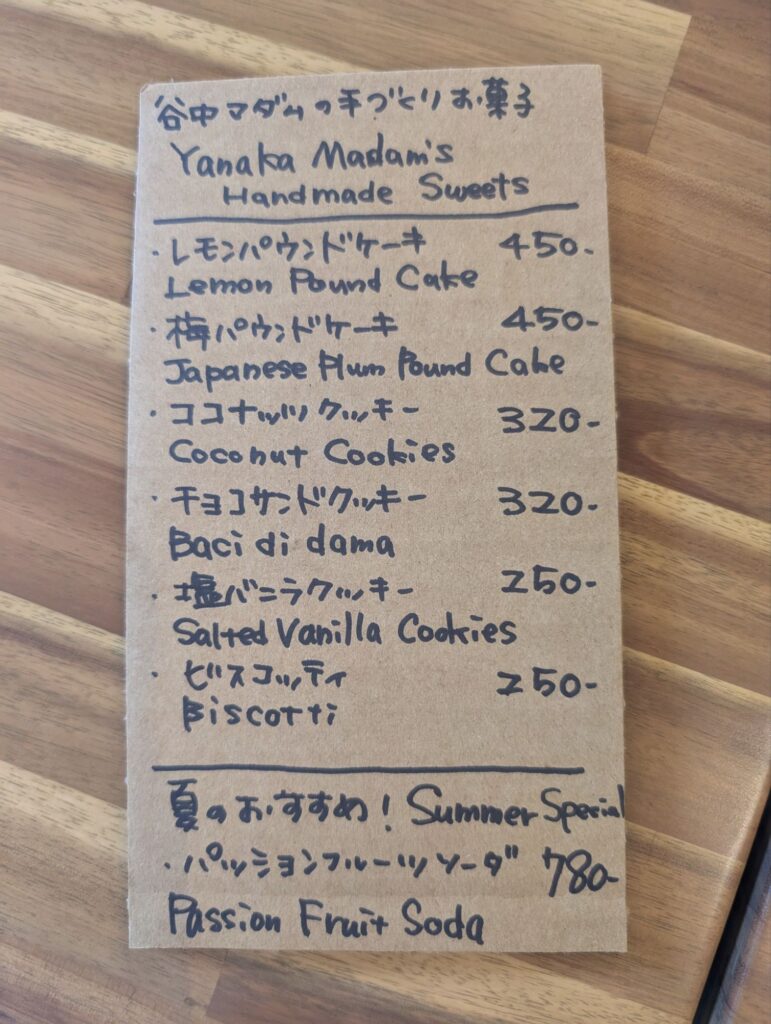 谷中マダムの手づくりお菓子
Yanaka Madam's
Handmade Sweets
・レモンパウンドケーキ 450-
Lemon Pound Cake
・梅パウンドケーキ 450-
Japanese Plum Pound Cake
・ココナッツクッキー 320-
Coconut Cookies
・チョコサンドクッキー 320-
Baci di dama
・塩バニラクッキー 250-
Salted Vanilla Cookies
・ビスコッティ 250-
Biscotti
夏のおすすめ! Summer Special
・パッションフルーツソーダ 780-
Passion Fruit Soda